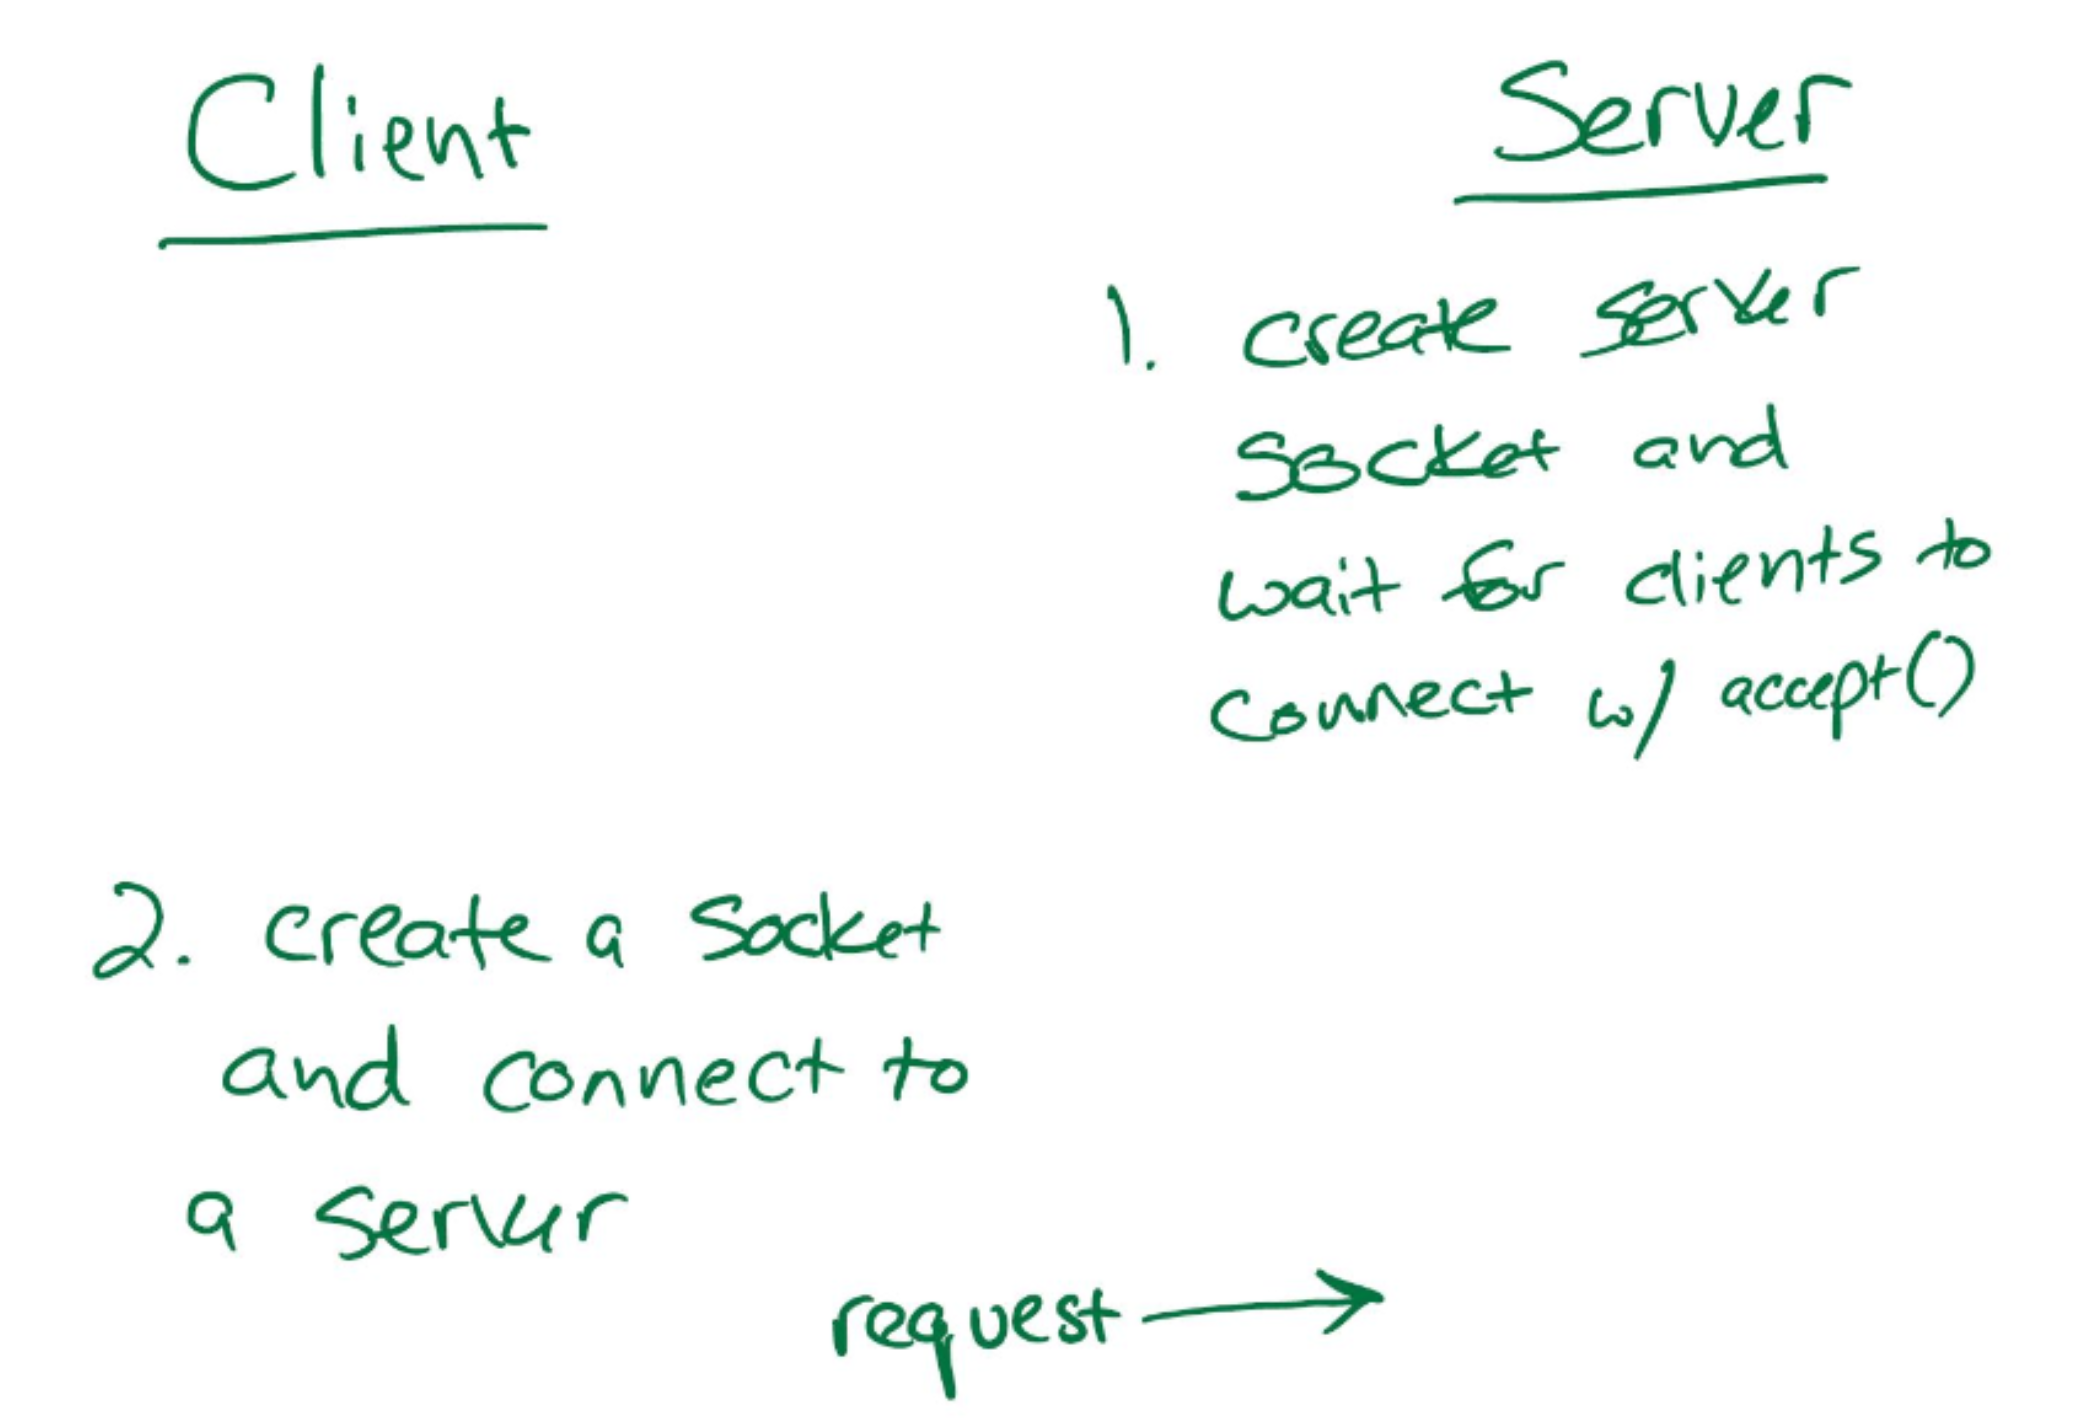 Client
Server
1. create server
socket and
wait for clients to
connect w/ accept()
2. create a socket
and connect to
a server
request →